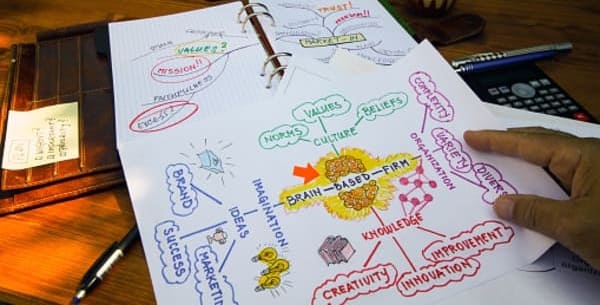 TRUST!
VALUES?
MARKET-IN
MISSION!!
FAITHFULNESS
EXCESS?
VALUES
BELIEFS
NORMS
CULTURE
COMPLEXITY
VARIETY
DIVER
ORGANIZATION
BRAIN-BASED-FIRM
IMAGINATION
IDEAS
BRAND
SUCCESS
MARKETIN
KNOWLEDGE
CREATIVITY
INNOVATION
IMPROVEMENT